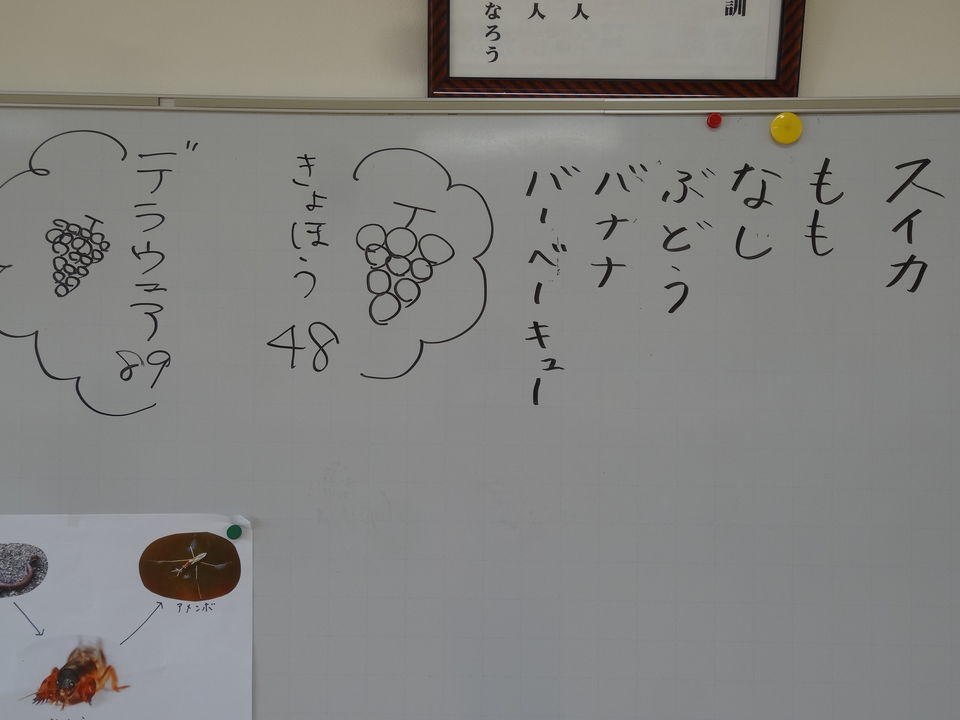 訓
人
人
なろう
スイカ
もも
なし
ぶどう
バナナ
バーベーキュー
きょほう 48
デラウェア 89
アメンボ